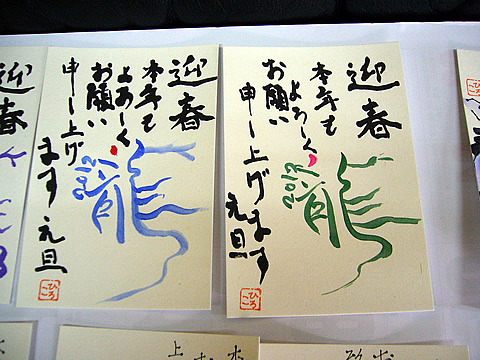 迎春
本年も
よろしく
お願い
申し上げ
ます 元旦
2012
龍
ひろこ
迎春
本年も
よろしく
お願い
申し上げます
元旦
2012
龍
ひろこ
迎春